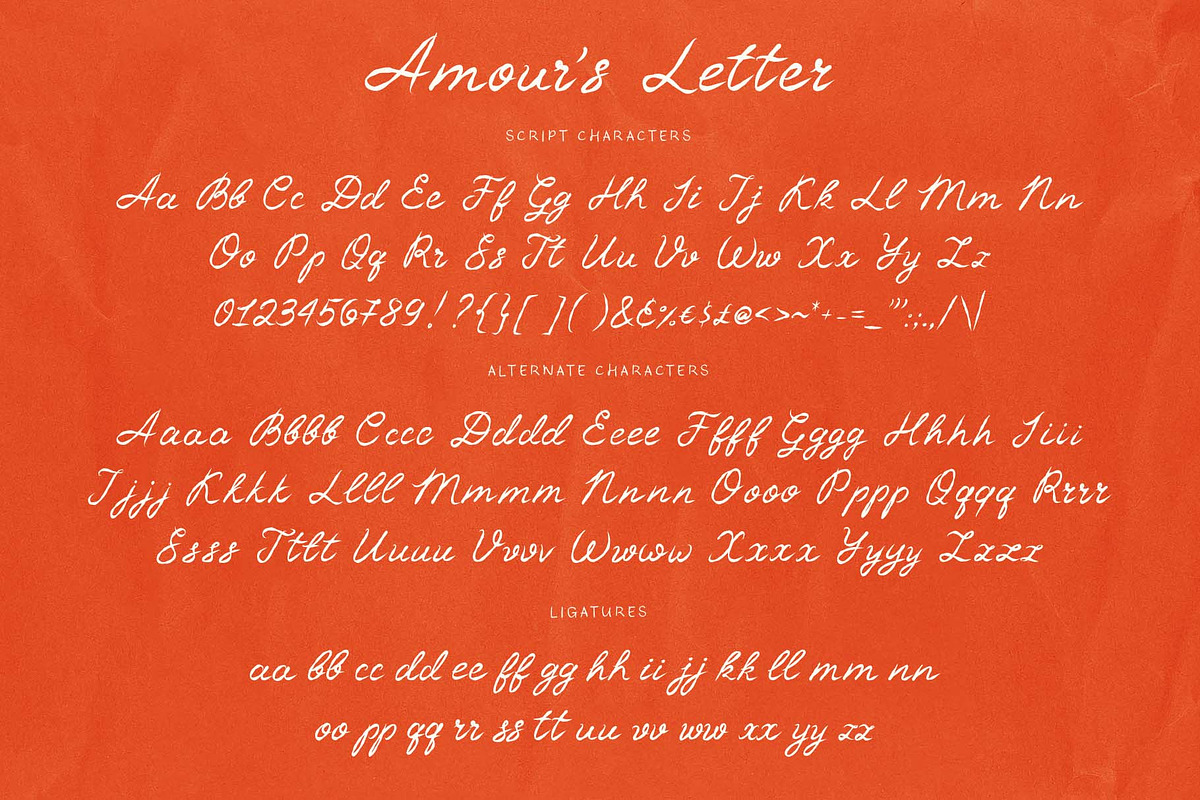 Amour's Letter
SCRIPT CHARACTERS
Aa Bb Cc Dd Ee Ff Gg Hh Ii Jj Kk Ll Mm Nn
Oo Pp Qq Rr Ss Tt Uu Vv Ww Xx Yy Zz
0123456789!?{}[ ]( )&¢%€$£@<>~*+-=_"':;.,/\|
ALTERNATE CHARACTERS
Aaaa Bbbb Cccc Dddd Eeee Ffff Gggg Hhhh Iiii
Jjjj Kkkk Llll Mmmm Nnnn Oooo Pppp Qqqq Rrrr
Ssss Tttt Uuuu Vvvv Wwww Xxxx Yyyy Zzzz
LIGATURES
aa bb cc dd ee ff gg hh ii jj kk ll mm nn
oo pp qq rr ss tt uu vv ww xx yy zz